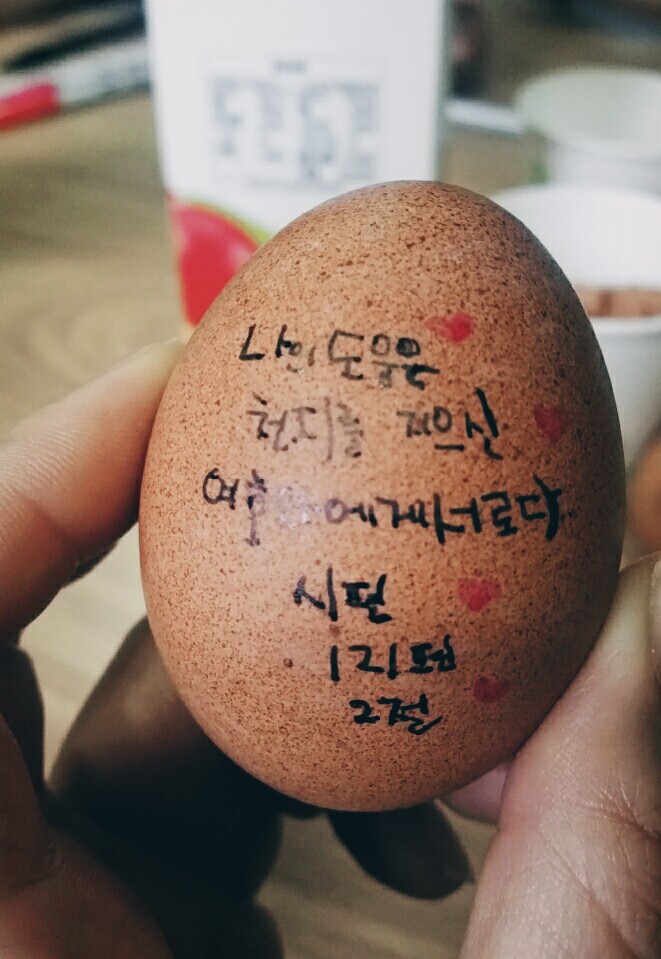 나의 도움은
천지를 지으신
여호와에게서로다
시편
121편
2절